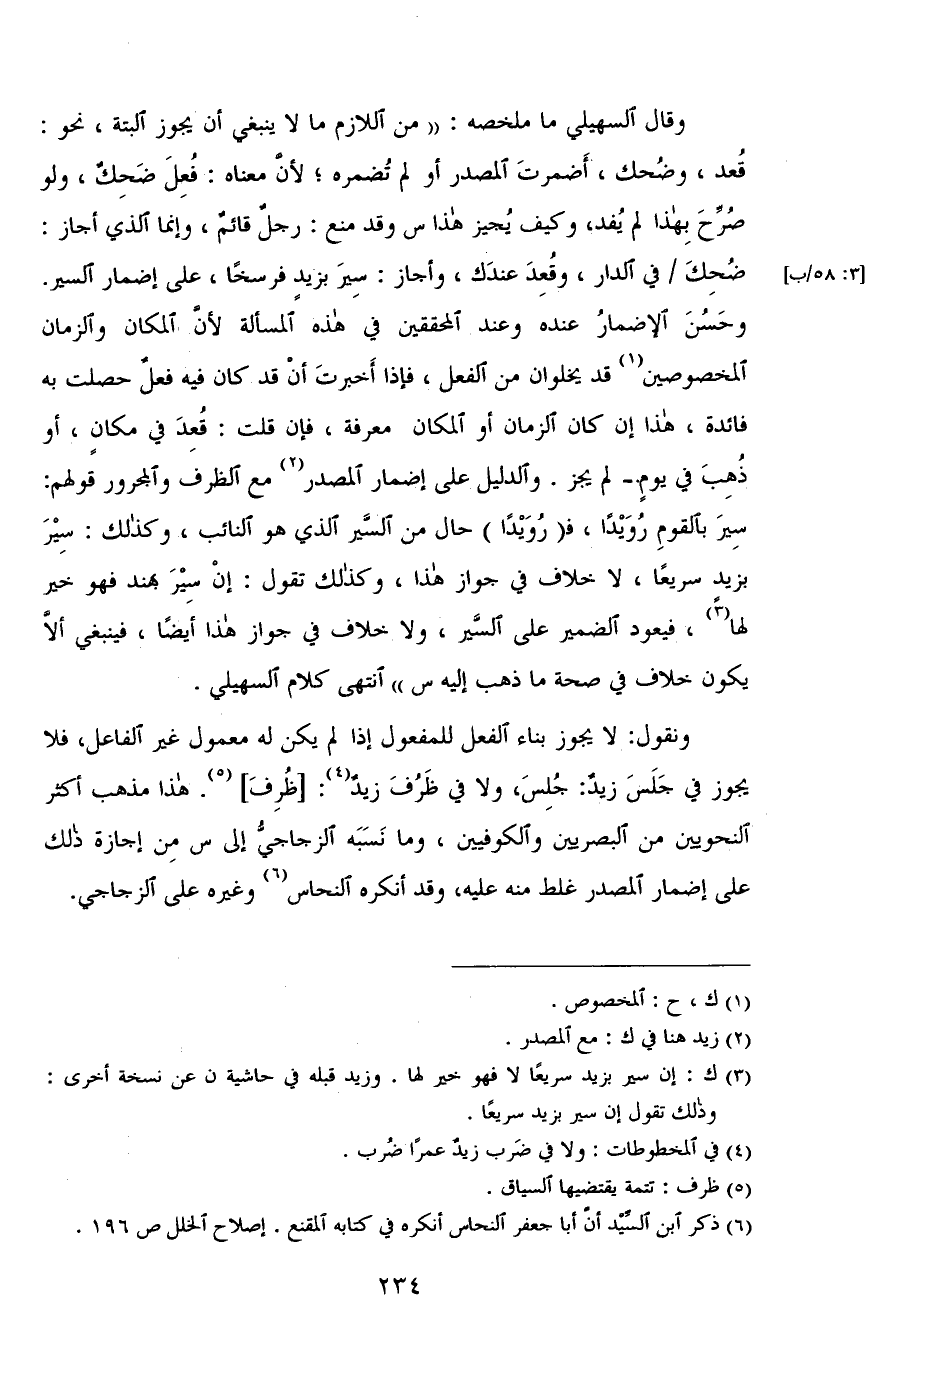 وقال ٱلسهيلي ما ملخصه : (( من ٱللازم ما لا ينبغي أن يجوز ٱلبتة ، نحو :
قُعد ، وضُحك ، أَضمرتَ ٱلمصدر أو لم تُضمره ؛ لأنَّ معناه : فُعِلَ ضَحِكٌ ، ولو
صُرِّحَ بِهٰذا لم يُفد، وكيف يُجيز هٰذا س وقد منع : رجلٌ قائمٌ ، وإنما ٱلذي أجاز :
ضُحِكَ / في ٱلدار ، وقُعِدَ عندَك ، وأجاز : سِيرَ بزيدٍ فرسخًا ، على إضمار ٱلسير. [٣: ٥٨/ب]
وحَسُنَ ٱلإضمارُ عنده وعند ٱلمحققين في هٰذه ٱلمسألة لأنَّ ٱلمكان وٱلزمان
ٱلمخصوصين(١) قد يخلوان من ٱلفعل ، فإذا أَخبرتَ أنْ قد كان فيه فعلٌ حصلت به
فائدة ، هٰذا إن كان ٱلزمان أو ٱلمكان معرفة ، فإن قلت : قُعِدَ في مكانٍ ، أو
ذُهِبَ في يومٍ- لم يجز . وٱلدليل على إضمار ٱلمصدر(٢) مع ٱلظرف وٱلمجرور قولهم:
سِيرَ بٱلقومِ رُوَيْدًا ، فـ( رُوَيْدًا ) حال من ٱلسَّير ٱلذي هو ٱلنائب ، وكذٰلك : سِيْرَ
بزيدٍ سريعًا ، لا خلاف في جواز هٰذا ، وكذٰلك تقول : إنْ سِيْرَ بهندٍ فهو خير
لها(٣) ، فيعود ٱلضمير على ٱلسَّير ، ولا خلاف في جواز هٰذا أيضًا ، فينبغي ألاَّ
يكون خلاف في صحة ما ذهب إليه س )) ٱنتهى كلام ٱلسهيلي .
ونقول: لا يجوز بناء ٱلفعل للمفعول إذا لم يكن له معمول غير ٱلفاعل، فلا
يجوز في جَلَسَ زيدٌ: جُلِسَ، ولا في ظَرُفَ زيدٌ(٤): [ظُرِفَ](٥). هٰذا مذهب أكثر
ٱلنحويين من ٱلبصريين وٱلكوفيين ، وما نَسَبَه ٱلزجاجيُّ إلى س مِن إجازة ذٰلك
على إضمار ٱلمصدر غلط منه عليه، وقد أنكره ٱلنحاس(٦) وغيره على ٱلزجاجي.
(١) ك ، ح : ٱلمخصوص .
(٢) زيد هنا في ك : مع ٱلمصدر .
(٣) ك : إن سير بزيد سريعًا لا فهو خير لها . وزيد قبله في حاشية ن عن نسخة أخرى :
وذٰلك تقول إن سير بزيد سريعًا .
(٤) في ٱلمخطوطات : ولا في ضَرب زيدٌ عمرًا ضُرب .
(٥) ظرف : تتمة يقتضيها ٱلسياق .
(٦) ذكر ٱبن ٱلسِّيْد أنَّ أبا جعفر ٱلنحاس أنكره في كتابه ٱلمقنع . إصلاح ٱلخلل ص ١٩٦ .
٢٣٤